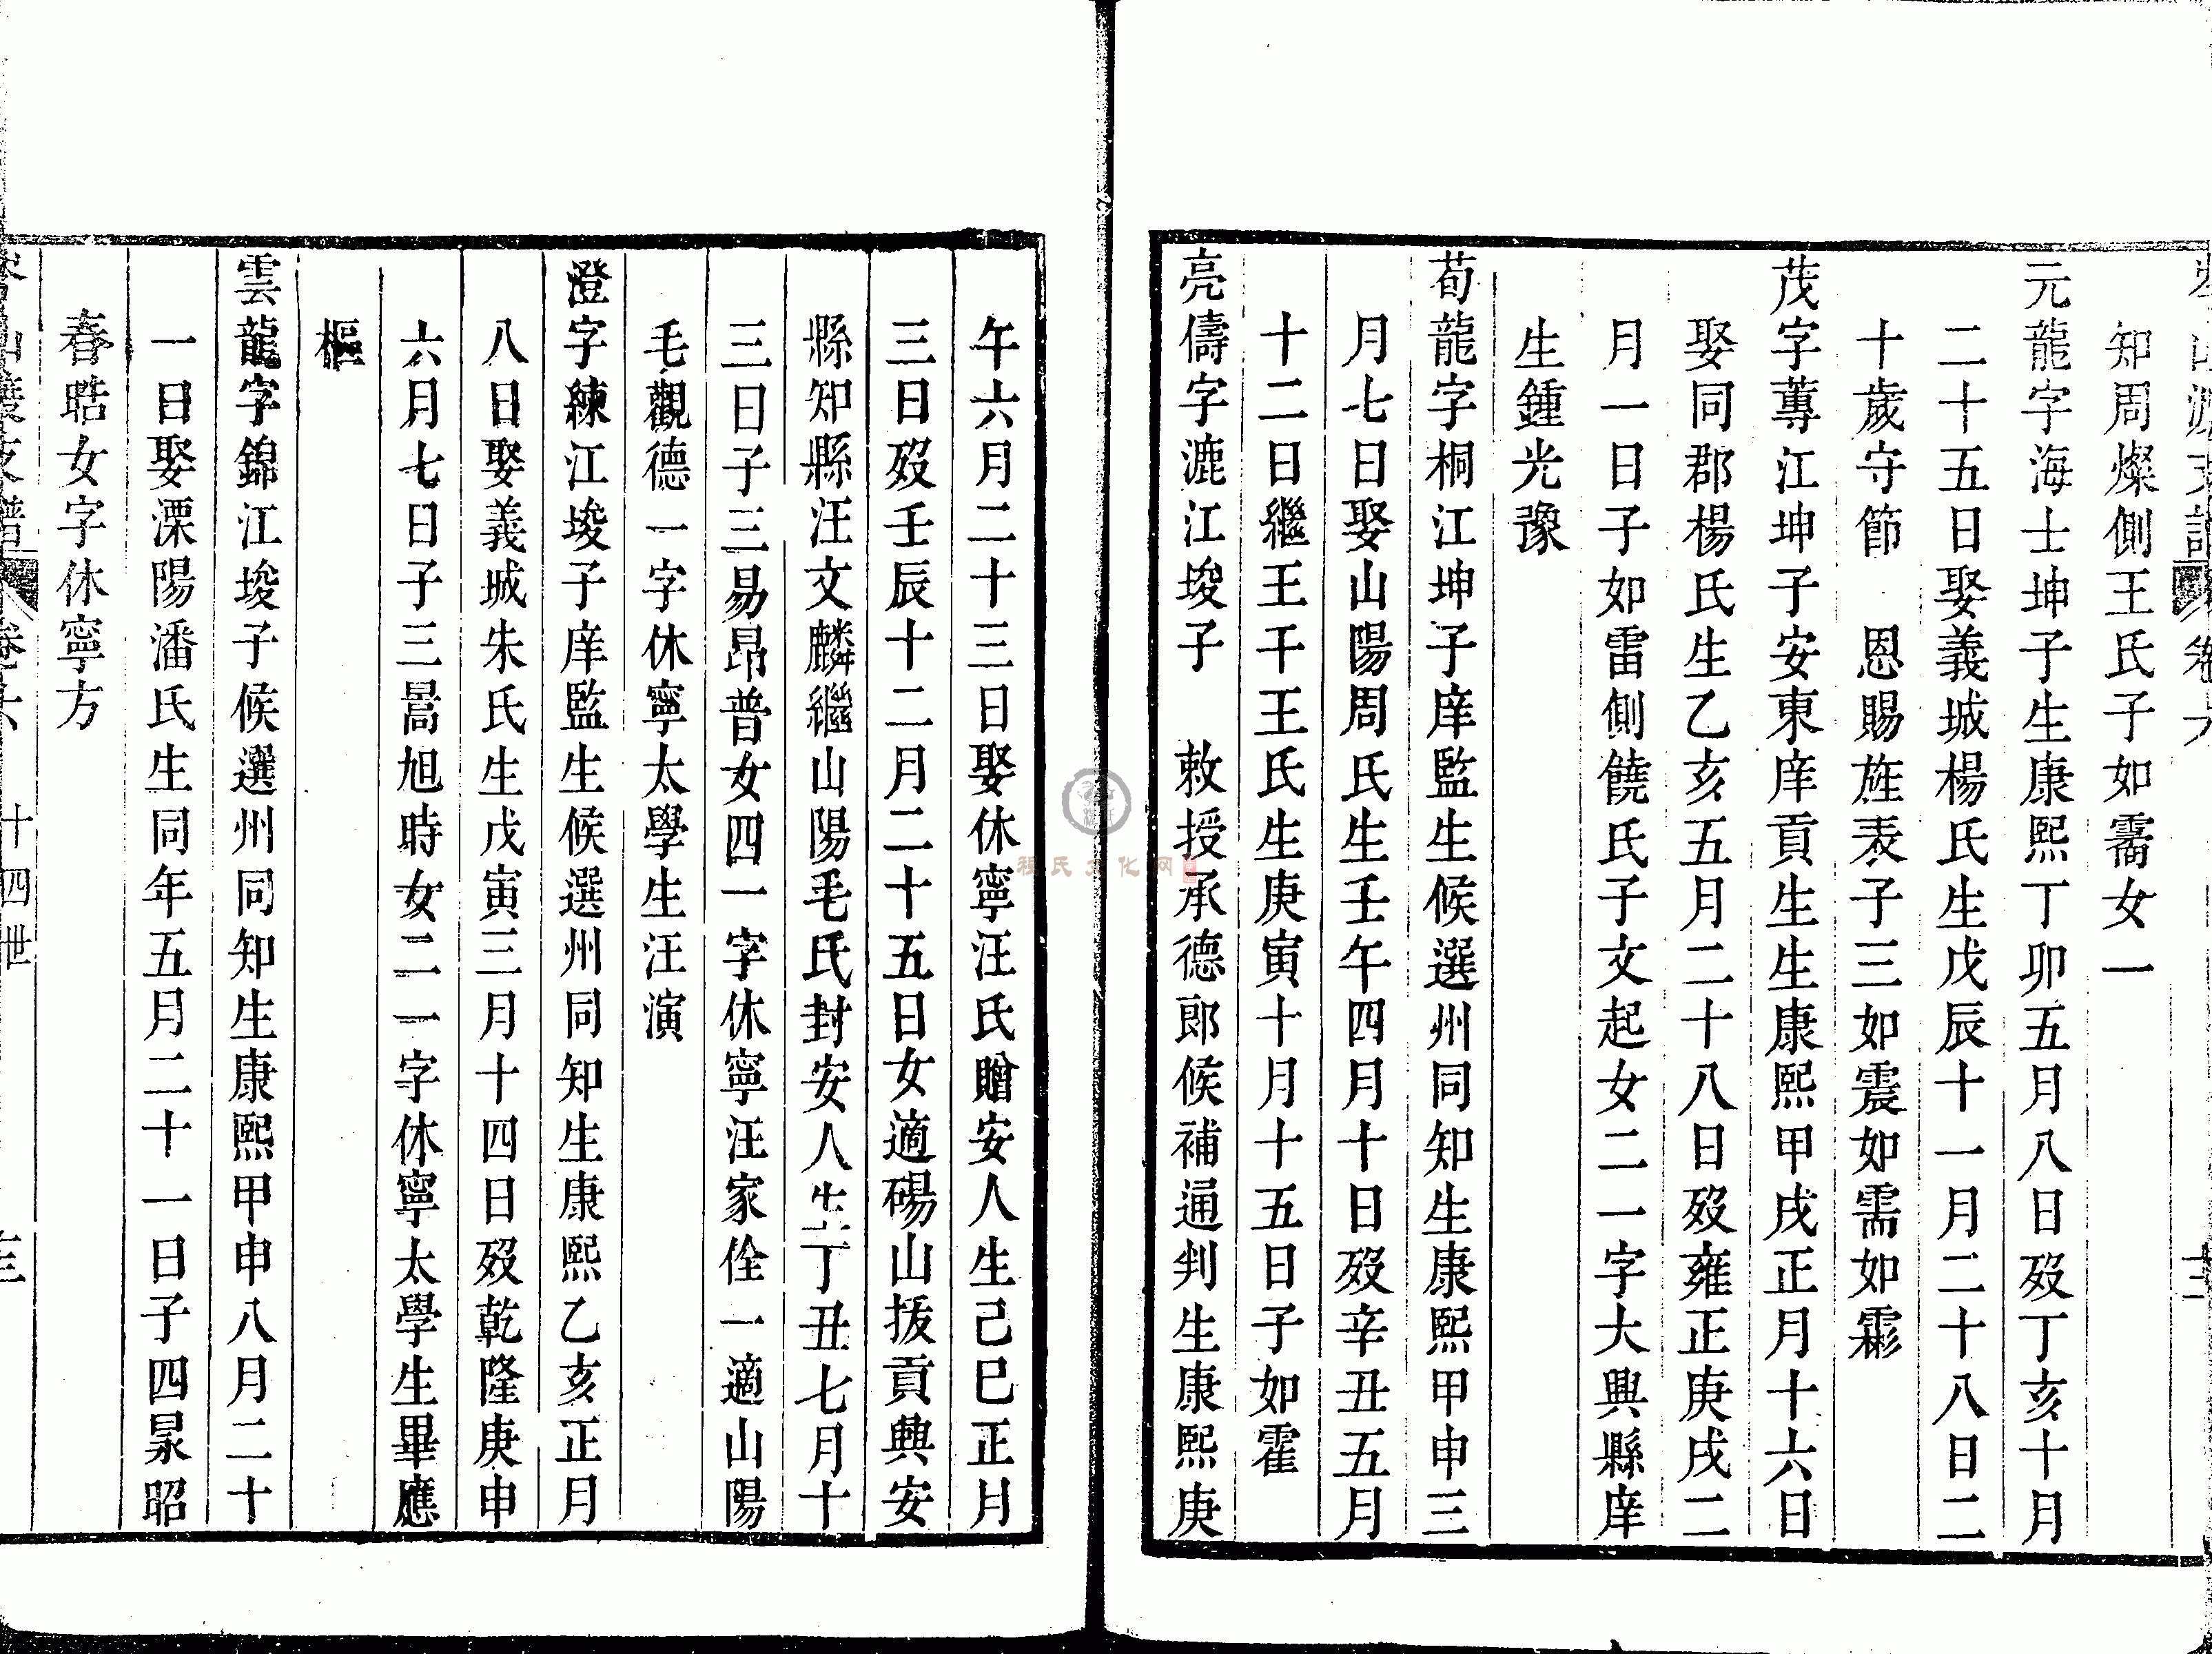 知周燦側王氏子如霱女一
元龍字海士坤子生康熙丁卯五月八日歿丁亥十月
二十五日娶義城楊氏生戊辰十一月二十八日二
十歲守節　恩賜旌表子三如震如需如霦
茂字蓴江坤子安東庠貢生生康熙甲戌正月十六日
娶同郡楊氏生乙亥五月二十八日歿雍正庚戌二
月一日子如雷側饒氏子文起女二一字大興縣庠
生鍾光豫
荀龍字桐江坤子庠監生候選州同知生康熙甲申三
月七日娶山陽周氏生壬午四月十日歿辛丑五月
十二日繼王干王氏生庚寅十月十五日子如霍
亮儔字漉江埈子　敕授承德郎候補通判生康熙庚
午六月二十三日娶休寧汪氏贈安人生己巳正月
三日歿壬辰十二月二十五日女適碭山拔貢典安
縣知縣汪文麟繼山陽毛氏封安人生丁丑七月十
三日子三易昂普女四一字休寧汪家佺一適山陽
毛觀德一字休寧太學生汪演
澄字練江埈子庠監生候選州同知生康熙乙亥正月
八日娶義城朱氏生戊寅三月十四日歿乾隆庚申
六月七日子三暠旭時女二一字休寧太學生畢應
樞
雲龍字錦江埈子候選州同知生康熙甲申八月二十
一日娶溧陽潘氏生同年五月二十一日子四杲昭
春晧女字休寧方
卷六　十四世
程氏文化网